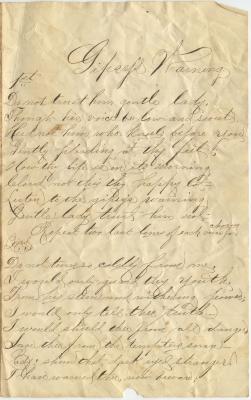 Gipsey's Warning
1st
Do not trust him gentle lady,
Though his voice be low and sweet
Heed not him who kneels before you
Gently pleading at thy feet
Now thy life is in its morning
Cloud not this thy happy lot
Listen to the gipseys warning
Gentle lady trust him not
Repeat two last lines of each verse
chorus
2nd
Do not turn so coldly from me,
I would only guard thy youth
From his stern and withering power
I would only tell thee truth
I would shield thee from all danger
Save thee from the tempters snare
Lady shun that dark eyed stranger
I have warned thee now beware